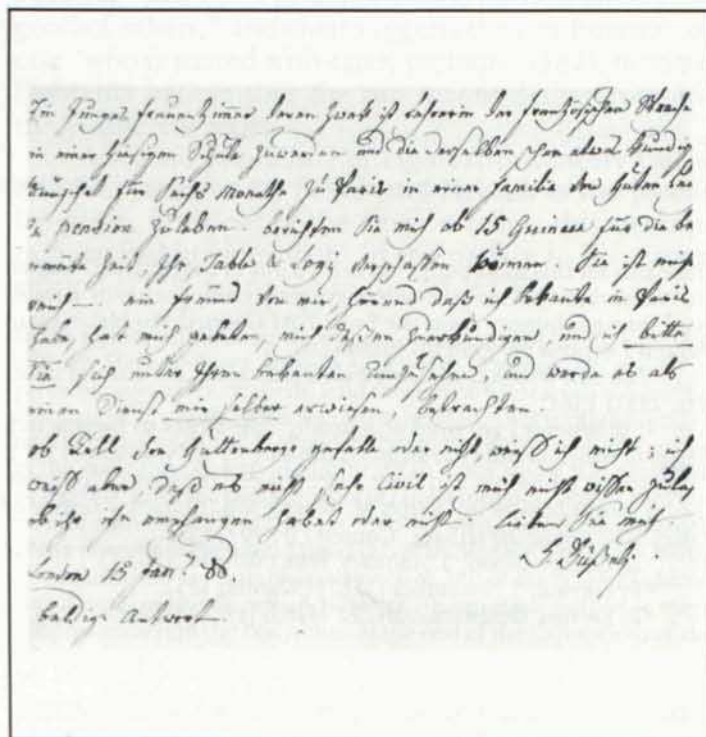 Ein Junges frauenzimmer deren Zwek ist Lehrerin der französischen Sprache
in einer hiesigen Schule zuwerden und die derselben schon etwas kundig
wünschet für Sechs Monathe zu Paris in einer familie von guten
pension zuleben. berichten Sie mich ob 15 Guineas für die be
nennte Zeit, Ihr, Table & Logis verschaffen können. Sie ist nicht
reich — ein freund von mir, hörend daß ich bekannte in Paris
habe, hat mich gebeten, mich deßen zuerkundigen, und ich bitte
Sie sich unter Ihren bekanten umzusehen, und werde es als
einen Dienst mir selber erwiesen, betrachten.
ob Tell den Guttenbergs gefalle oder nicht, weiß ich nicht; ich
weiß aber, daß es nicht sehr Civil ist mich nicht wissen zulaß
ob ihr ihn empfangen habet oder nicht. lieben Sie mich.
London 15 Jan. 88.
baldige Antwort.